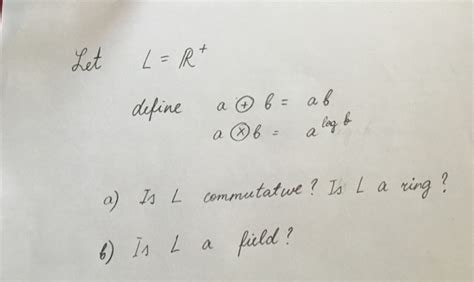 Let L = ℝ⁺
define a ⊕ b = ab
a ⊗ b = a^{log b}
a) Is L commutative? Is L a ring?
b) Is L a field?